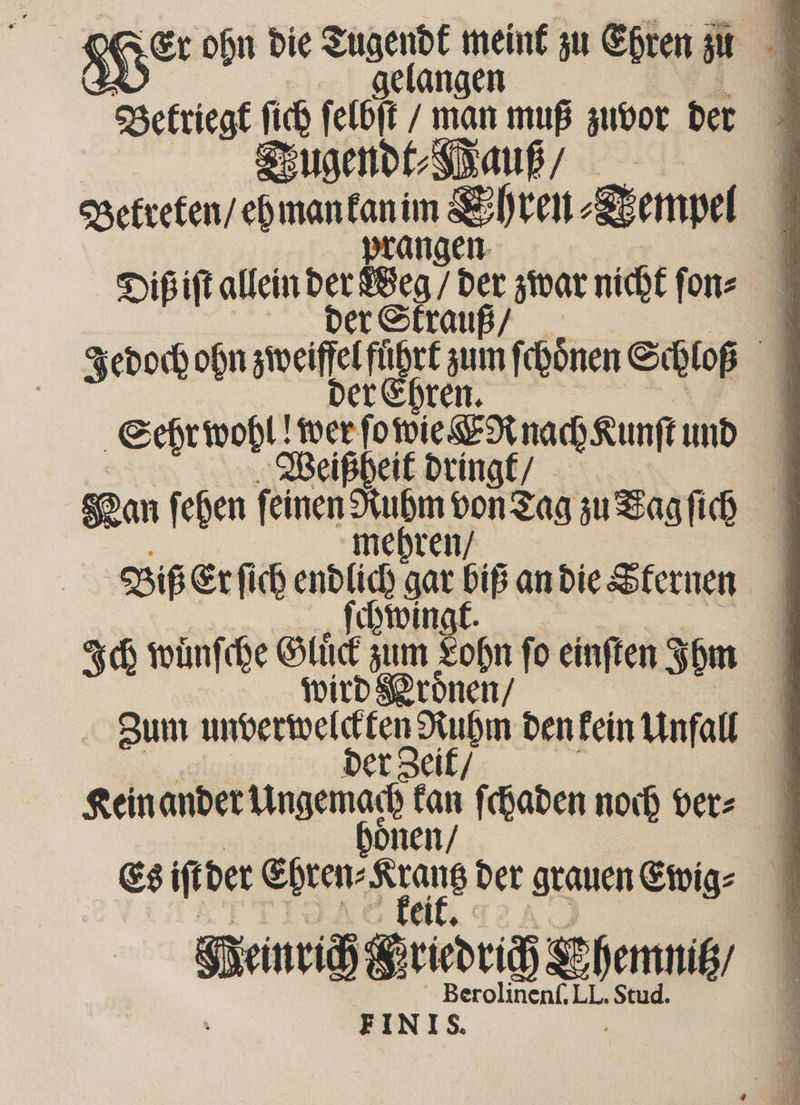 WEr ohn die Tugendt meint zu Ehren zu
gelangen
Betriegt ſich ſelbſt / man muß zuvor der
Tugendt⸗Hauß /
Betreten / eh man kan im Ehren⸗Tempel
prangen
Diß iſt allein der Weg / der zwar nicht ſon⸗
der Strauß /
Jedoch ohn zweiffel fuͤhrt zum ſchoͤnen Schloß
der Ehren.
Sehr wohl! wer ſo wie ER nach Kunſt und
Weißheit dringt /
Kan ſehen ſeinen Ruhm von Tag zu Tag ſich
mehren /
Biß Er ſich endlich gar biß an die Sternen
ſchwingt.
Ich wuͤnſche Gluͤck zum Lohn ſo einſten Ihm
wird Kroͤnen /
Zum unverwelckten Ruhm den kein Unfall
der Zeit /
Kein ander Ungemach kan ſchaden noch ver⸗
hoͤnen /
Es iſt der Ehren⸗Krantz der grauen Ewig⸗
keit.
Heinrich Friedrich Chemnitz /
Berolinenſ. LL. Stud.
FINIS.